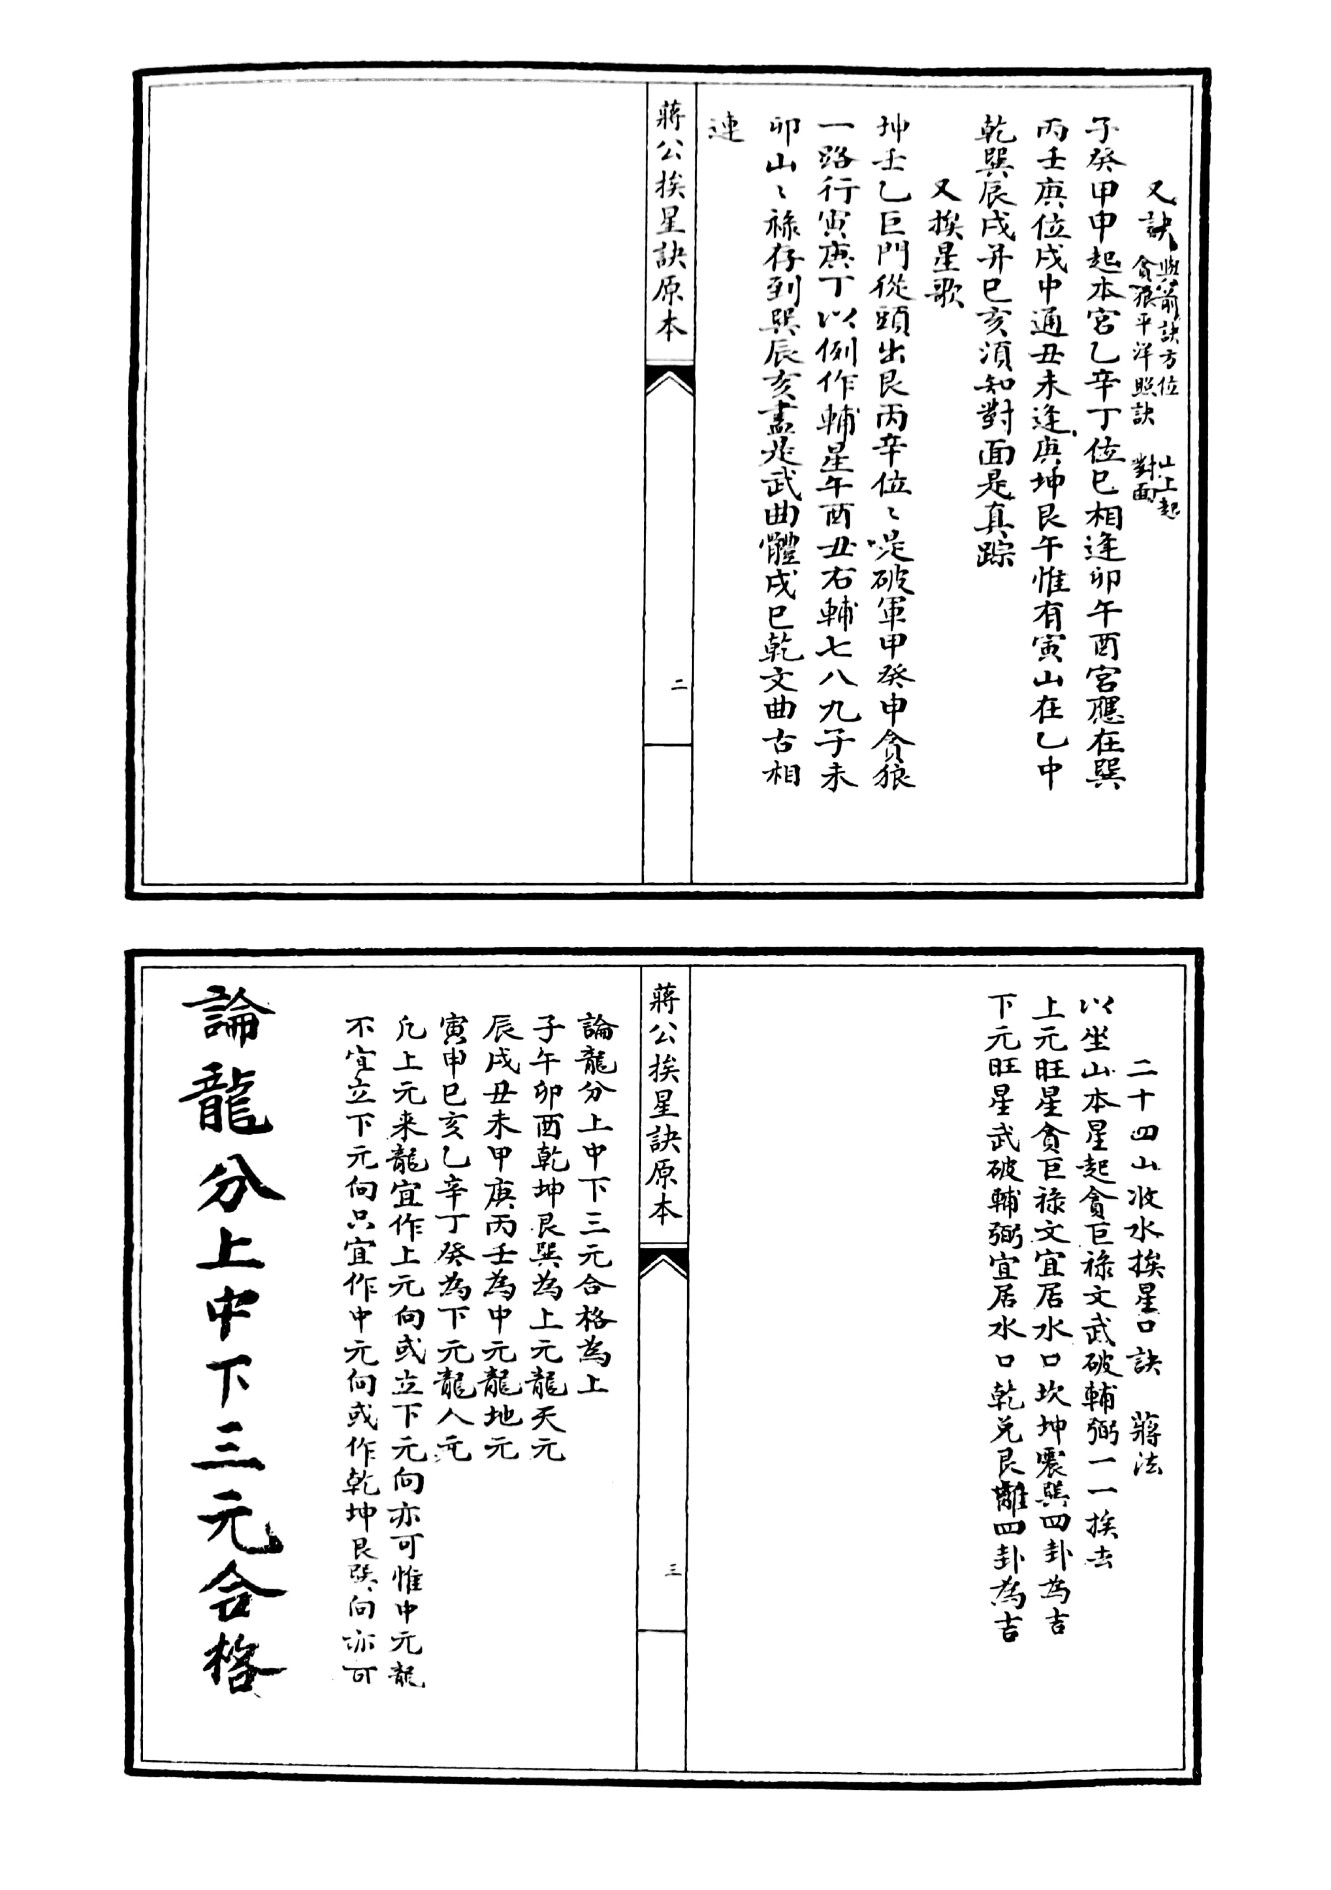 又訣
與前訣方位
貪狼平洋照訣
山上起
對面
子癸甲申起本宮乙辛丁位巳相逢卯午酉宮應在巽
丙壬庚位戌中通丑未逢庚坤艮午惟有寅山在乙中
乾巽辰戌并巳亥須知對面是真踪
又挨星歌
坤壬乙巨門從頭出艮丙辛位〻是破軍甲癸申貪狼
一路行寅庚丁以例作輔星午酉丑右輔七八九子未
卯山〻祿存到巽辰亥盡是武曲體戌巳乾文曲古相
連
蔣公挨星訣原本
二
二十四山收水挨星口訣 蔣法
以坐山本星起貪巨祿文武破輔弼一一挨去
上元旺星貪巨祿文宜居水口坎坤震巽四卦為吉
下元旺星武破輔弼宜居水口乾兌艮離四卦為吉
蔣公挨星訣原本
三
論龍分上中下三元合格為上
子午卯酉乾坤艮巽為上元龍天元
辰戌丑未甲庚丙壬為中元龍地元
寅申巳亥乙辛丁癸為下元龍人元
凡上元来龍宜作上元向或立下元向亦可惟中元龍
不宜立下元向只宜作中元向或作乾坤艮巽向亦可
論龍分上中下三元合格